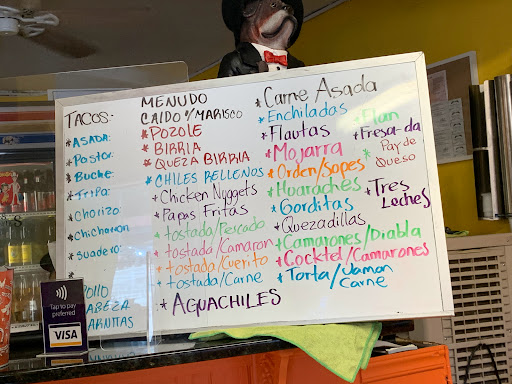 TACOS:
* ASADA:
* Pastor:
* Buche:
* Tripa:
* Chorizo:
* Chicharon
* Suadero:
*
POLLO
CABEZA
CARNITAS
MENUDO
CALDO 7/MARISCO
* POZOLE
* BIRRIA
* QUEZA BIRRIA
* CHILES RELLENOS
* Chicken Nuggets
* Papas Fritas
* tostada/Pescado
* tostada/Camaron
* tostada/Cuerito
* tostada/Carne
* AGUACHILES
* Carne Asada
* Enchiladas
* Flautas
* Mojarra
* Orden/Sopes
* Huaraches
* Gorditas
* Quezadillas
* Camarones/Diabla
* Cocktel/Camarones
* Torta/Jamon
Carne
* Flan
* Fresa-da
* Pay de
Queso
* Tres
Leches
Tap to pay
preferred
VISA